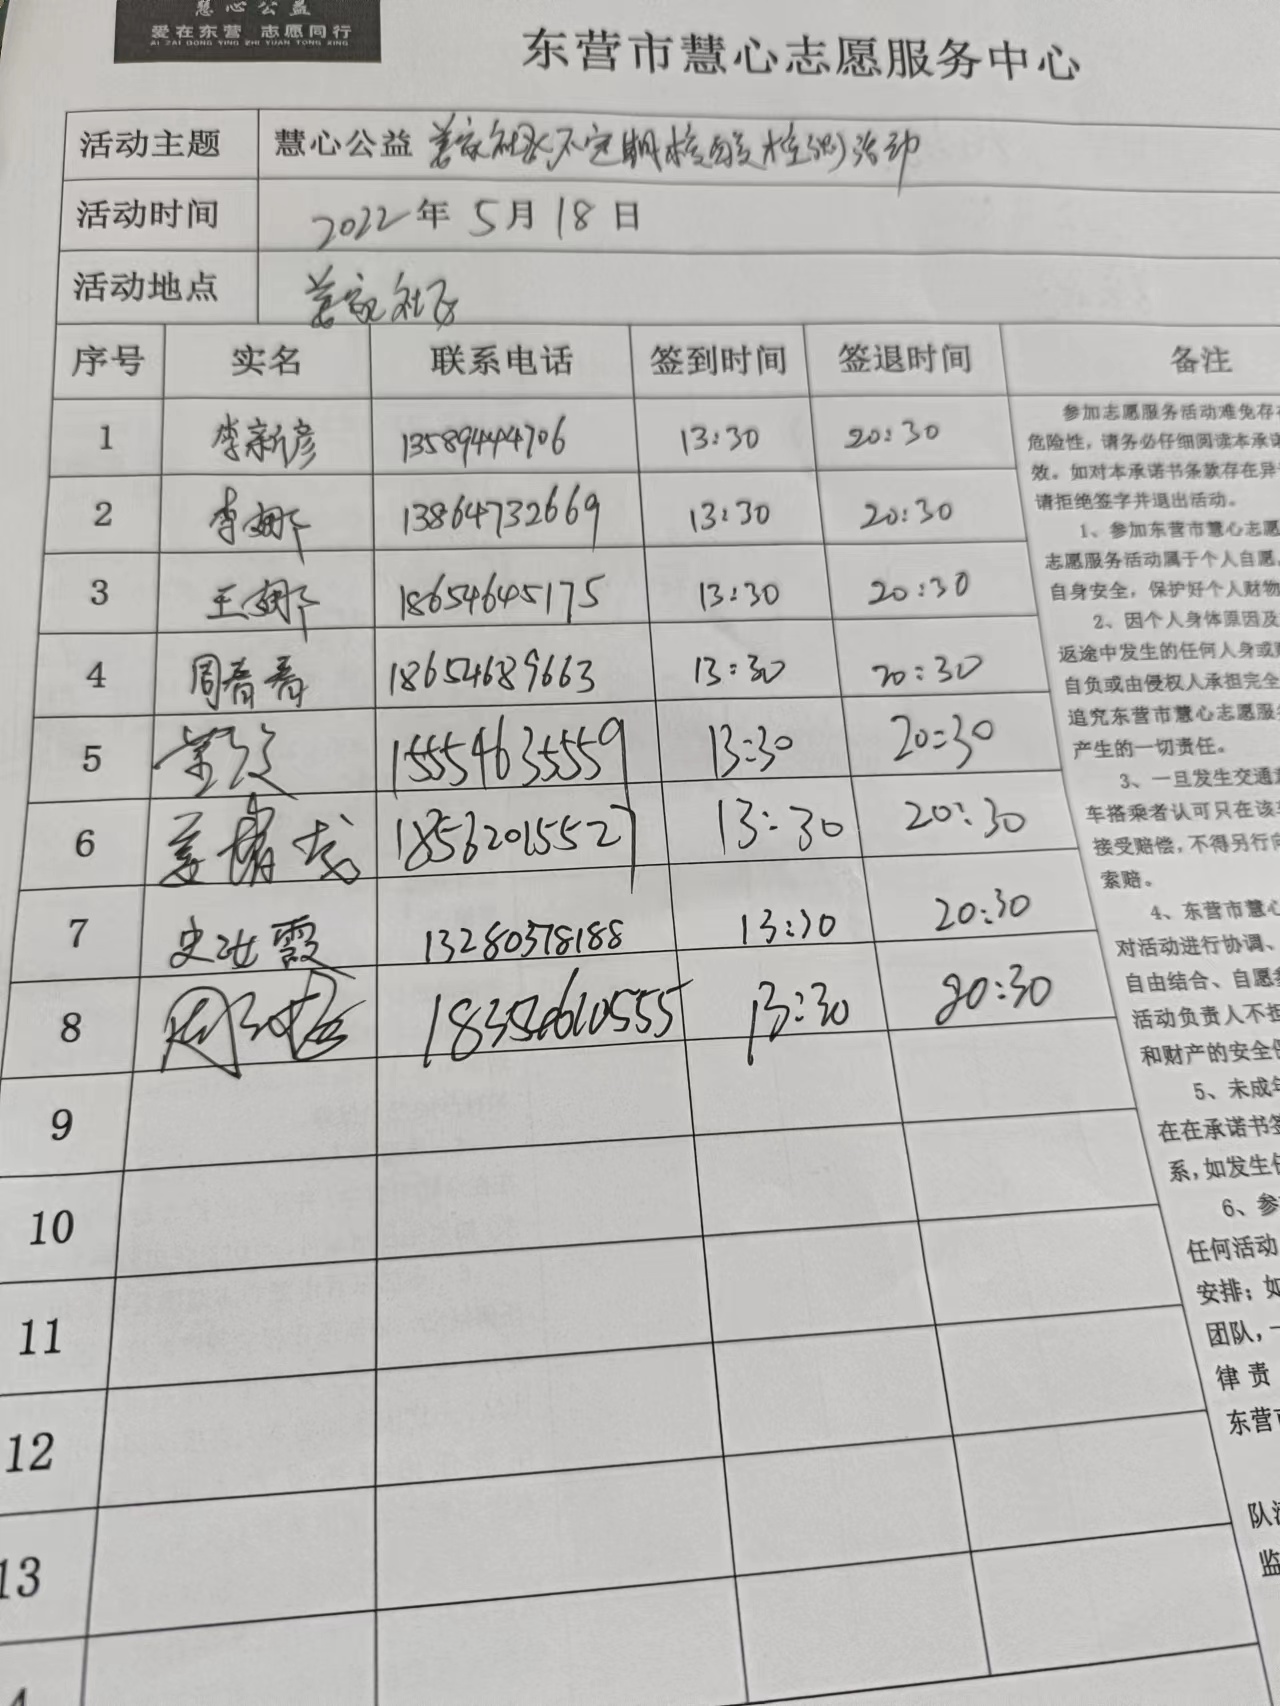 慧心公益
爱在东营 志愿同行
AI ZAI DONG YING ZHI YUAN TONG XING
东营市慧心志愿服务中心
活动主题 慧心公益 社区不定期核酸检测活动
活动时间 2022年 5月 18日
活动地点 社区
序号 实名 联系电话 签到时间 签退时间 备注
1 李新彦 13589444706 13:30 20:30
2 李娜 13864732669 13:30 20:30
3 王娜 18654645175 13:30 20:30
4 周春青 18654689663 13:30 20:30
5 15554635559 13:30 20:30
6 姜 18562015527 13:30 20:30
7 史 霞 13280378188 13:30 20:30
8 周 13:30 20:30
9
10
11
12
13
参加志愿服务活动难免存在
危险性，请务必仔细阅读本承诺
效。如对本承诺书条款存在异
请拒绝签字并退出活动。
1、参加东营市慧心志愿
志愿服务活动属于个人自愿
自身安全，保护好个人财物
2、因个人身体原因及
返途中发生的任何人身或
自负或由侵权人承担完全
追究东营市慧心志愿服
产生的一切责任。
3、一旦发生交通
车搭乘者认可只在该
接受赔偿，不得另行向
索赔。
4、东营市慧心
对活动进行协调、
自由结合、自愿
活动负责人不担
和财产的安全
5、未成年
在在承诺书签
系，如发生任
6、参
任何活动
安排；如
团队，一
律责
东营市
队
监